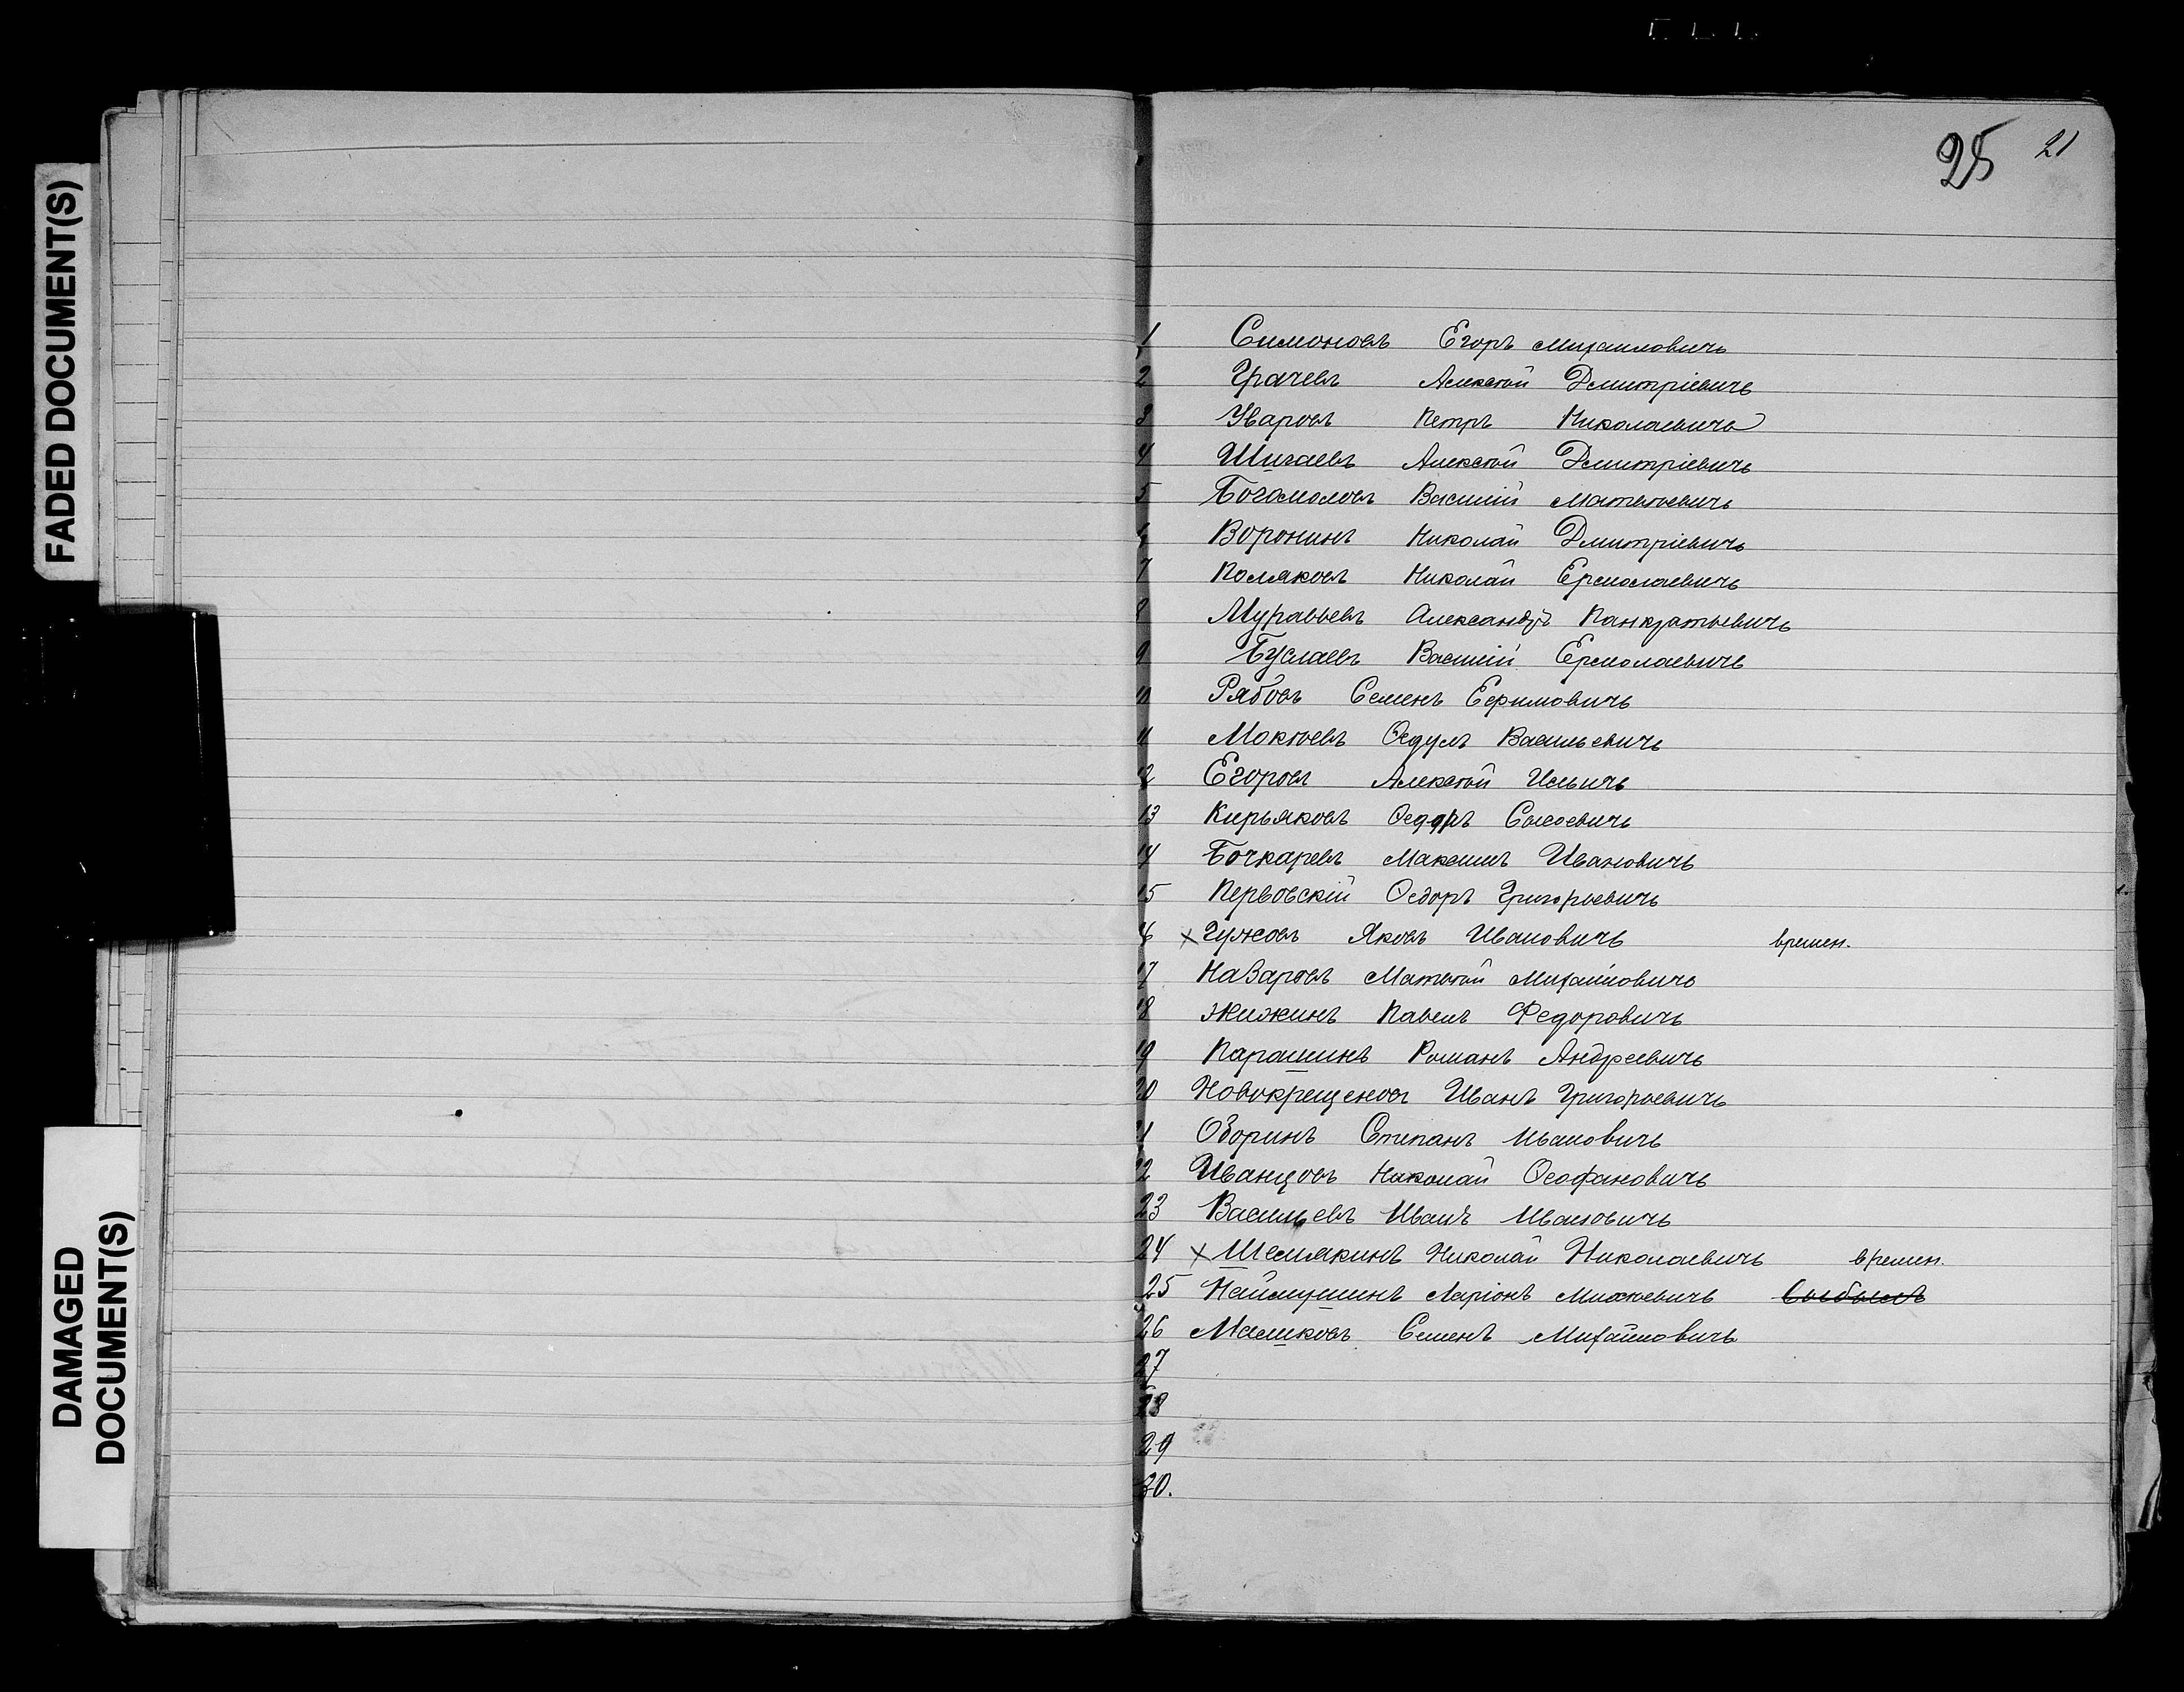 FADED DOCUMENT(S)
DAMAGED
DOCUMENT(S)
25 21
1 Симоновъ Егоръ Михаиловичь
2 Грачевъ Алексѣй Дмитріевичь
3 Уваровъ Петръ Николаевичь
4 Шигаевъ Алексѣй Дмитріевичь
5 Богомоловъ Василій Матвѣевичь
6 Воронинъ Николай Дмитріевичь
7 Поляковъ Николай Ермолаевичь
8 Муравьевъ Александръ Панкратьевичь
9 Буслаевъ Василій Ермолаевичь
10 Рябовъ Семенъ Ефимовичь
11 Мокѣевъ Ѳедулъ Васильевичь
12 Егоровъ Алексѣй Ильичь
13 Кирьяковъ Ѳедоръ Сысоевичь
14 Бочкаревъ Максимъ Ивановичь
15 Первовскій Ѳедоръ Григорьевичь
16 × Гужовъ Яковъ Ивановичь времен.
17 Назаровъ Матвѣй Михайловичь
18 Жижинъ Павелъ Федоровичь
19 Парашинъ Романъ Андреевичь
20 Новокрещеновъ Иванъ Григорьевичь
21 Оборинъ Степанъ Ивановичь
22 Иванцовъ Николай Ѳеофановичь
23 Васильевъ Иванъ Ивановичь
24 × Шемякинъ Николай Николаевичь времен.
25 Наймушинъ Ларіонъ Михѣевичь выбылъ
26 Машковъ Семенъ Михайловичь
27
28
29
30.